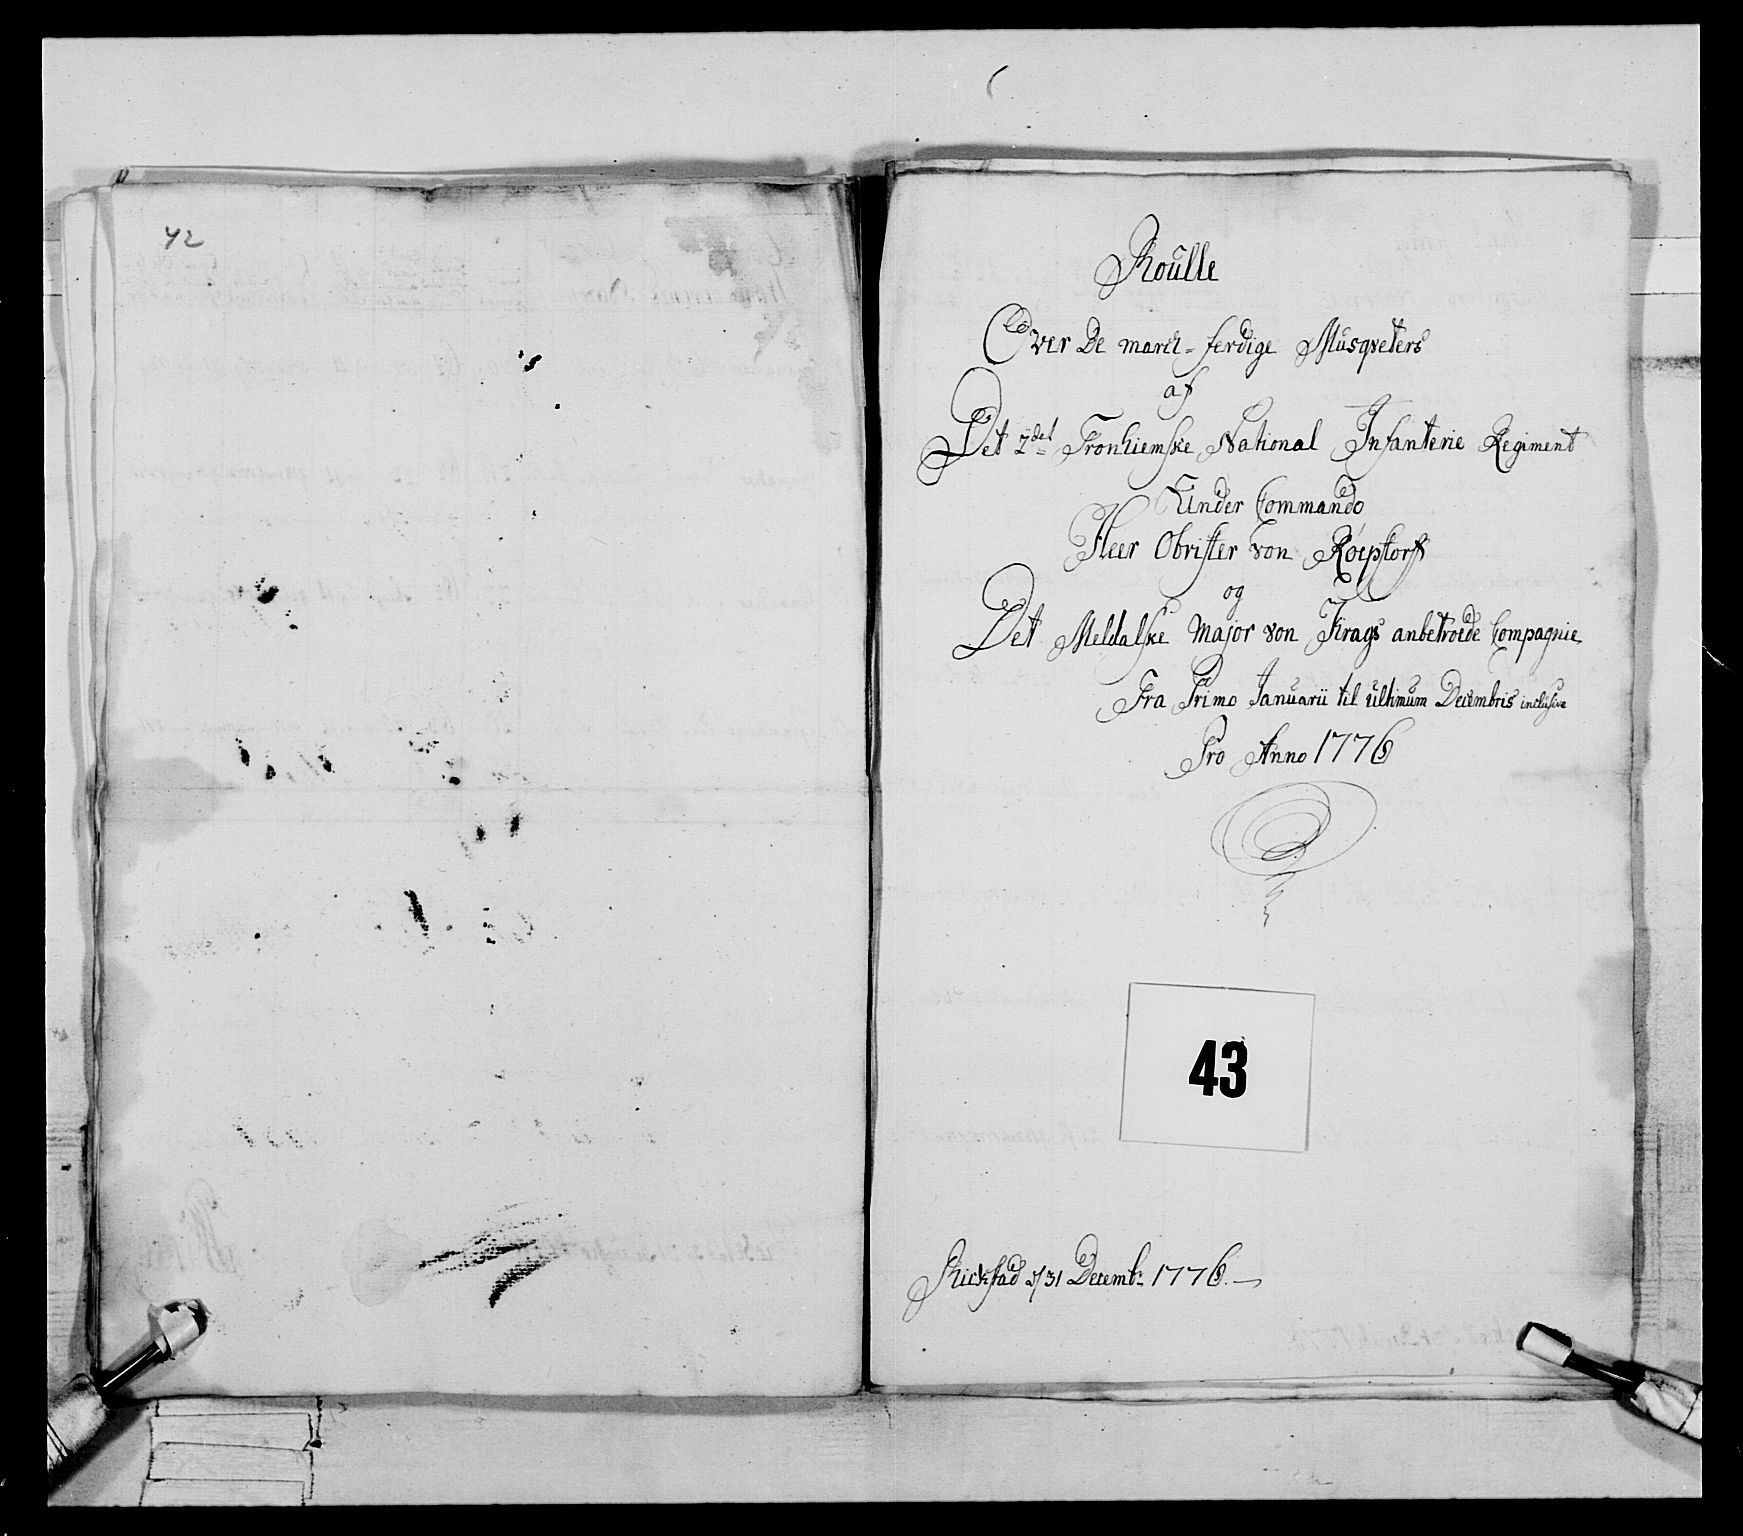 42
Roulle
Over De march-ferdige Musqveters
af
Det 2det Tronhiemske National Infanterie Regiment
Under Commando
Heer Obrister von Röepstorff
og
Det Meldalske Major von Krags anbetroede Compagnie
Fra Primo Januarii til ultimum Decembris inclusive
Pro Anno 1776
43
d/31 Decembr: 1776.